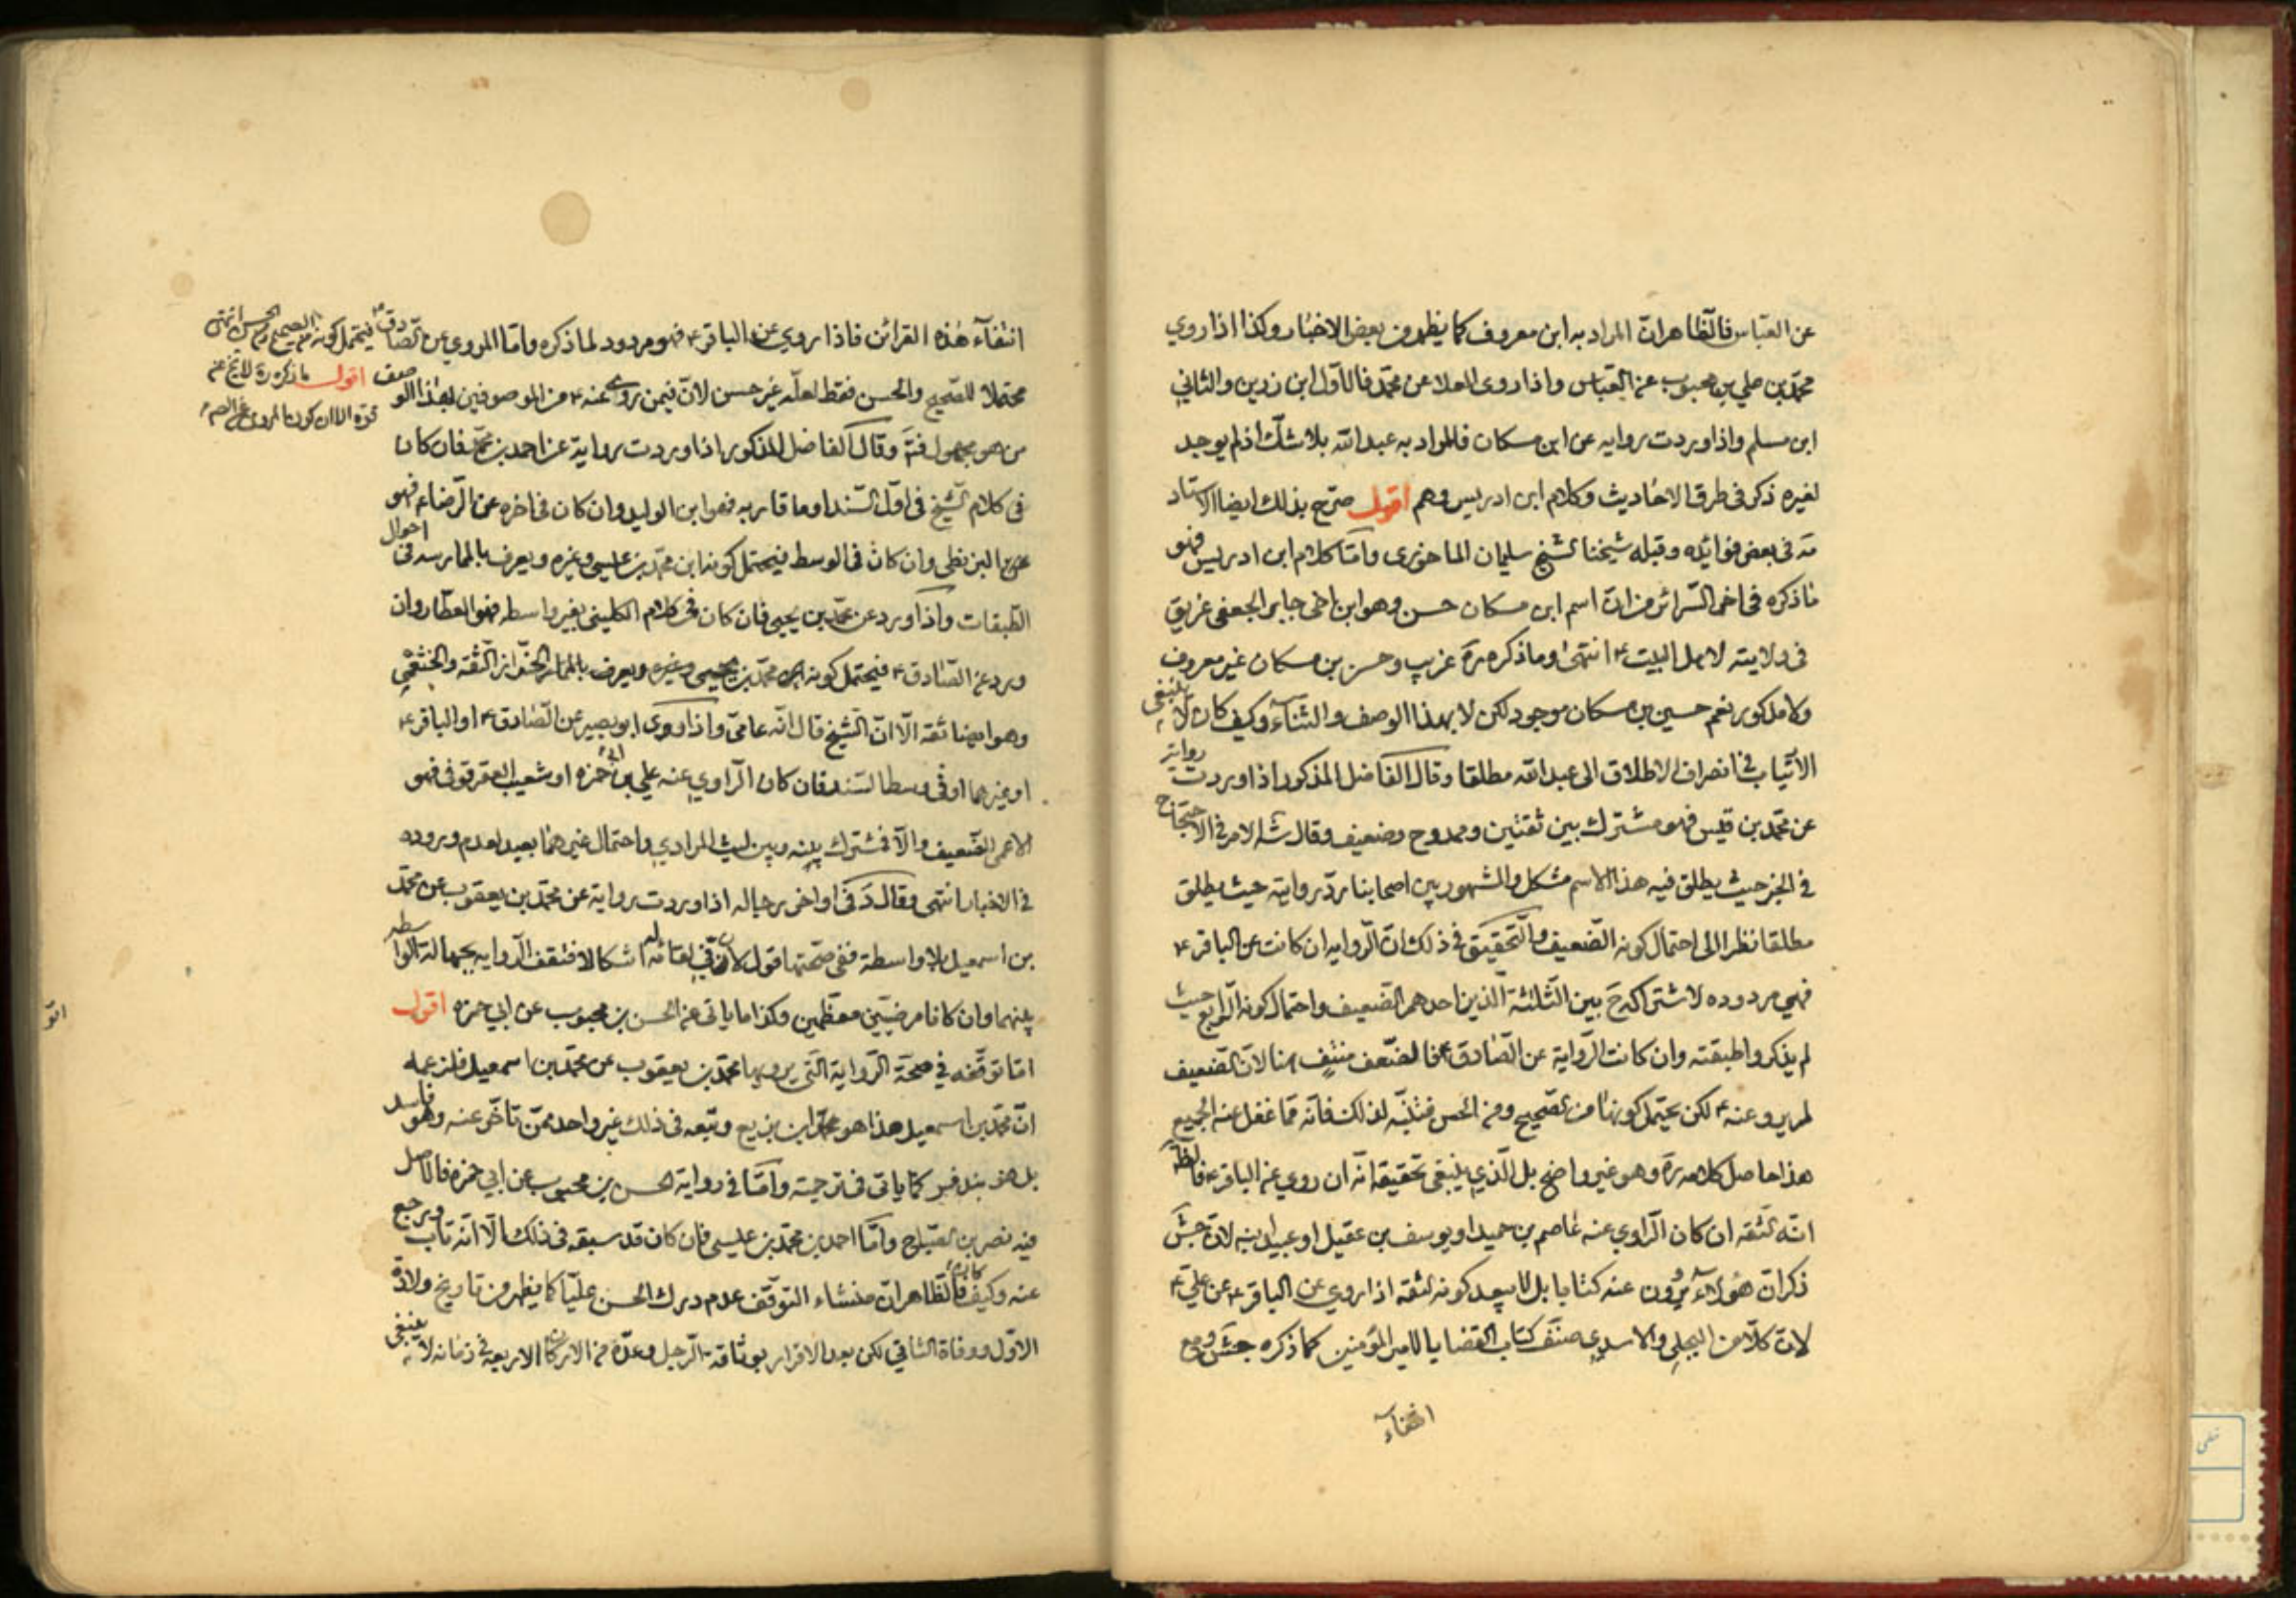 عن العباس فالظاهر ان المراد به ابن معروف كما يظهر من بعض الاخبار وكذا اذا روي
محمد بن علي بن محبوب عن العباس واذا روى العلا عن محمد فالاول ابن رزين والثاني
ابن مسلم واذا وردت رواية عن ابن مسكان فالمراد به عبد الله بلا شك اذ لم يوجد
لغيره ذكر في طرق الاحاديث وكلام ابن ادريس وهم اقول صرح بذلك ايضا الاستاد
مد في بعض فوائده وقبله شيخنا الشيخ سليمان الماحوزي واما كلام ابن ادريس فهو
ما ذكره في اخر السرائر من ان اسم ابن مسكان حسن وهو ابن اخي جابر الجعفي غريق
في ولايته لاهل البيت ع انتهى وما ذكره ره غريب وحسن بن مسكان غير معروف
ولا مذكور نعم حسين بن مسكان موجود لكن لا بهذا الوصف والثناء وكيف كان لا ينبغي
الارتياب في انصراف الاطلاق الى عبد الله مطلقا وقال الفاضل المذكور اذا وردت رواية
عن محمد بن قيس فهو مشترك بين ثقتين وممدوح وضعيف وقال شه الامر في الاحتجاج
في الخبر حيث يطلق فيه هذا الاسم مشكل والمشهور بين اصحابنا رد روايته حيث يطلق
مطلقا نظرا الى احتمال كونه الضعيف والتحقيق في ذلك ان الرواية ان كانت عن الباقر ع
فهي مردوده لاشتراكه ح بين الثلثة الذين احدهم الضعيف واحتمال كونه الرابع حيث
لم يذكروا طبقته وان كانت الرواية عن الصادق ع فالضعف منتف هنا لان الضعيف
لم يرو عنه ع لكن يحتمل كونها من الصحيح ومن الحسن فتنبه لذلك فانه مما غفل عنه الجميع
هذا حاصل كلامه ره وهو غير واضح بل الذي ينبغي تحقيقه انه ان روي عن الباقر ع فالظ
انه الثقه ان كان الراوي عنه عاصم بن حميد او يوسف بن عقيل او عبيد ابنه لان جش
ذكر ان هؤلاء يروون عنه كتابا بل لا يبعد كونه الثقه اذا روي عن الباقر ع عن علي ع
لان كلا من البجلي والاسدي صنف كتاب القضايا لامير المؤمنين كما ذكره جش ومع
انتفاء
انتفاء هذه القرائن فاذا روي عن الباقر ع فهو مردود لما ذكره واما المروي عن الصادق ع فيحتمل كونه من الصحيح ومن الحسن انتهى
محتملا للصحيح والحسن فقط لعله غير حسن لان فيمن روى عنه ع من الموصوفين بهذا الوصف اقول ما ذكره ره لا يخ عن
قوة الا ان كون المروي عن الصم
من هو مجهول فتَ وقال الفاضل المذكور اذا وردت رواية عن احمد بن محمد فان كان
في كلام الشيخ في اول السند او ما قاربه فهو ابن الوليد وان كان في اخره عن الرضا ع فهو
البزنطي وان كان في الوسط فيحتمل كونه ابن محمد بن عيسى وغيره ويعرف بالممارسه في احوال
الطبقات واذا ورد عن محمد بن يحيى فان كان في كلام الكليني بغير واسطه فهو العطار وان
ورد عن الصادق ع فيحتمل كونه محمد بن يحيى وغيره ويعرف الخزاز الثقه والخثعمي
وهو ايضا ثقه الا ان الشيخ قال انه عامي واذا روى ابو بصير عن الصادق ع او الباقر ع
او غيرهما او في وسط السند فان كان الراوي عنه علي بن ابي حمزه او شعيب العقرقوفي فهو
الاعمى الضعيف والا فمشترك بينه وبين ليث المرادي واحتمال غيرهما بعيد لعدم وروده
في الاخبار انتهى وقال د في اواخر رجاله اذا وردت رواية عن محمد بن يعقوب عن محمد
بن اسمعيل بلا واسطة ففي صحتها قول لان في لقائه له اشكالا فتقف الرواية بجهالة الواسطه
بينهما وان كانا مرضيين معظمين وكذا ما ياتي عن الحسن بن محبوب عن ابي حمزه اقول
اما توقفه في صحة الرواية التي يرويها محمد بن يعقوب عن محمد بن اسمعيل فلزعمه
ان محمد بن اسمعيل هذا هو ابن بزيع وتبعه في ذلك غير واحد ممن تاخر عنه وهو فاسد
بل هو بندفر كما ياتي في ترجمته واما في رواية الحسن بن محبوب عن ابي حمزه فالاصل
فيه نصر بن الصباح واما احمد بن محمد بن عيسى فان كان قد سبقه في ذلك الا انه تاب ورجع
عنه وكيف كان فالظاهر ان منشاء التوقف عدم درك الحسن عليا كما يظهر من تاريخ ولادة
الاول ووفاة الثاني لكن بعد الاقرار بوثاقة الرجل وعده من الاركان الاربعه في زمانه لا ينبغي